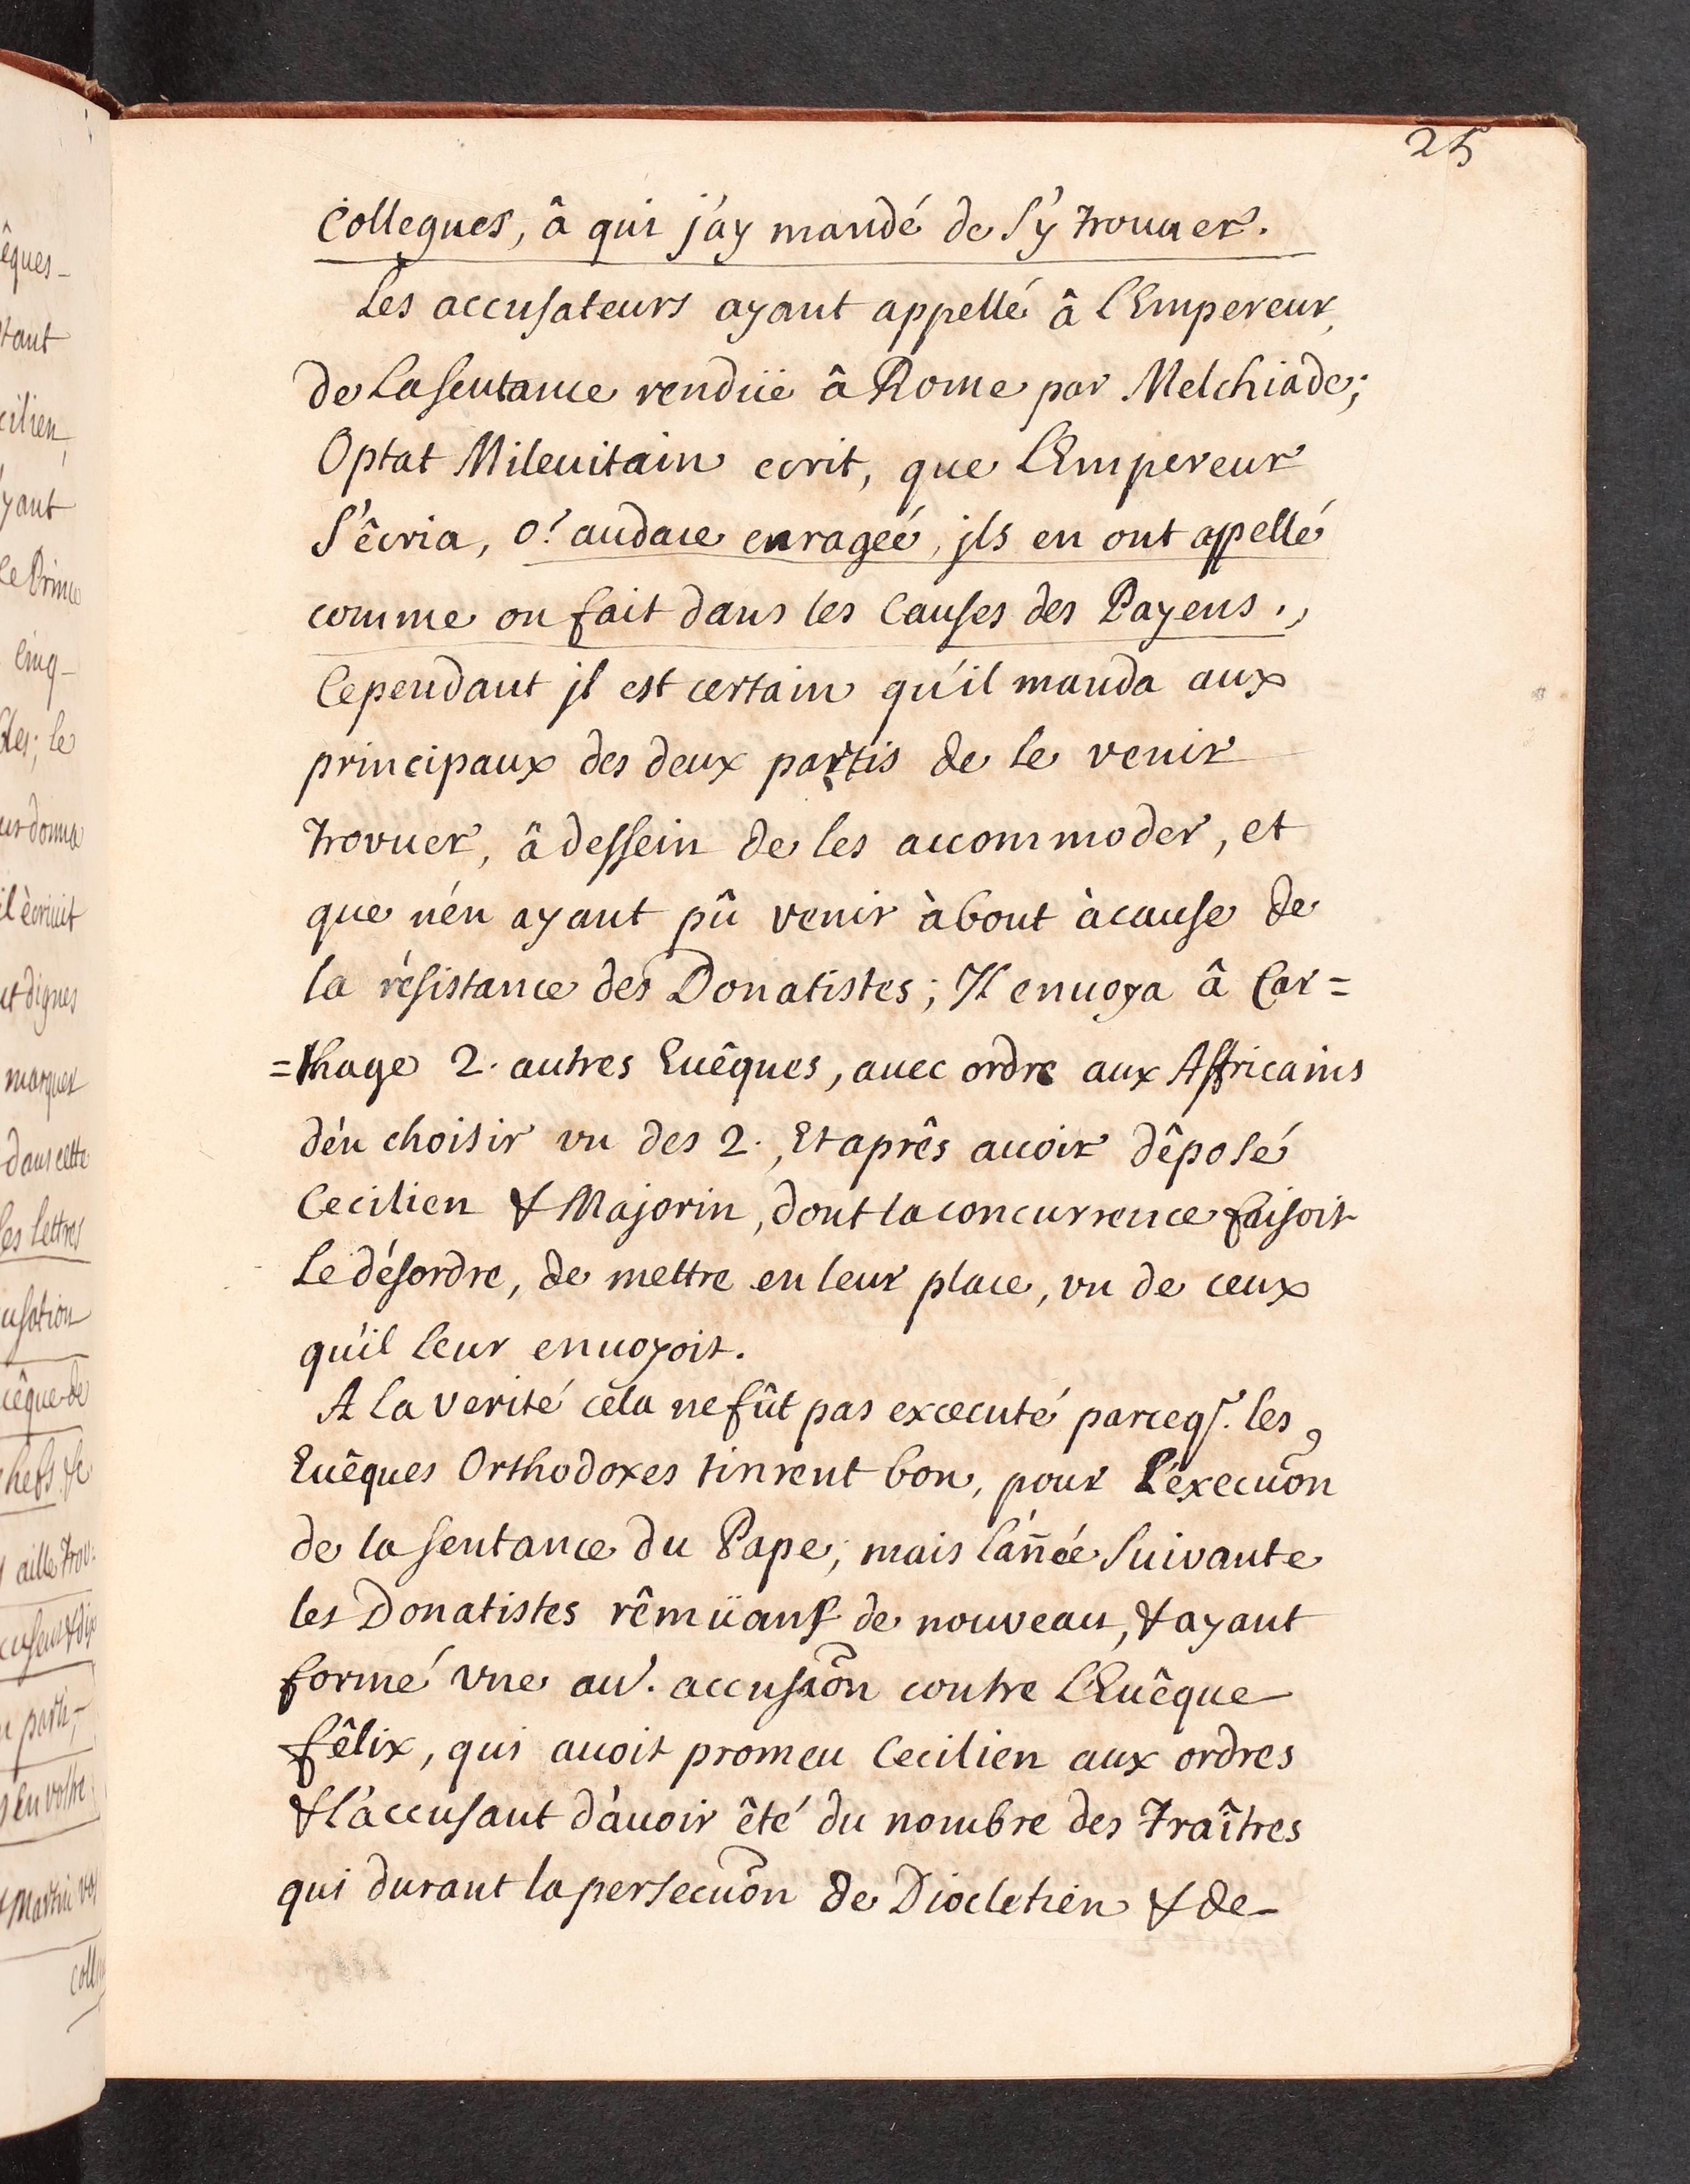 25
Collegues, â qui j'ay mandé de s'y trouuer.
Les accusateurs ayant appellé â l'Empereur,
de la sentance rendüe â Rome par Melchiade;
Optat Mileuitain ecrit, que l'Empereur
s'êcria, o! audace enrageé, jls en ont appellé
comme on fait dans les Causes des Payens.,
Cependant jl est certain qu'il manda aux
principaux des deux partis de le venir
trovuer, â dessein de les accommoder, et
que n'en ayant pû venir à bout à cause de
la résistance des Donatistes; Il enuoya â Car=
=thage 2. autres Euêques, auec ordre aux Affricains
d'en choisir vn des 2., Et aprês auoir dêposé
Cecilien & Majorin, dont la concurrence faisoit
Le désordre, de mettre en leur place, vn de ceux
qu'il leur enuoyoit.
A la verité cela ne fût pas excecuté parceq. les
Euêques Orthodoxes tinrent bon, pour L'execuõn
de la sentance du Pape; mais l'añeé suivante
les Donatistes rêmüans de nouveau, & ayant
formé vne au. accusaõn contre l'Euêque
fêlix, qui auoit promeu Cecilien aux ordres
& l'accusant d'auoir êté du nombre des Traîtres
qui durant la persecuõn de Diocletien & de-